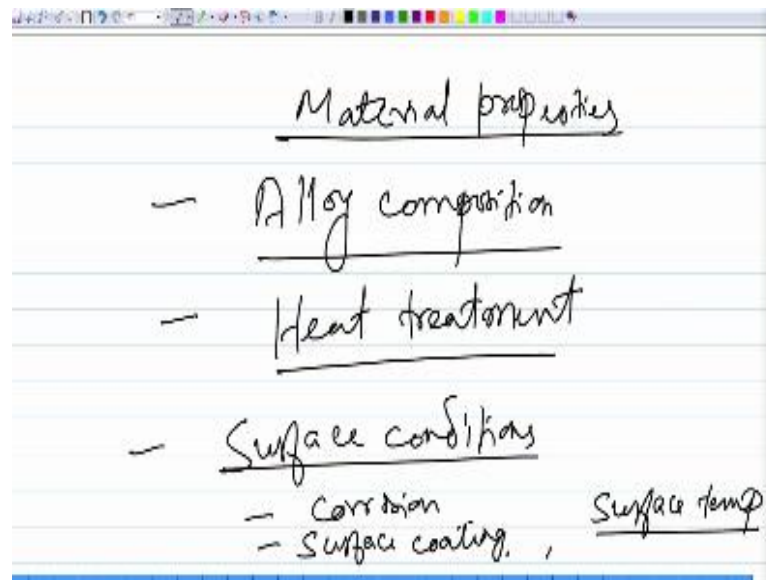 Material properties
- Alloy composition
- Heat treatment
- Surface conditions
- Corrosion
- Surface coating, , Surface temp